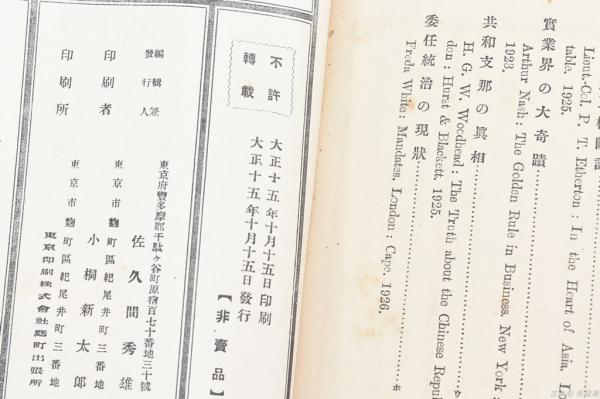 Lieut.-Col. P. T. Etherton : In the Heart of Asia.
table, 1925.
實業界の大奇蹟
Arthur Nash : The Golden Rule in Business. New York :
1923.
共和支那の眞相
H. G. W. Woodhead : The Truth about the Chinese Repu
don : Hurst & Blackett. 1925.
委任統治の現狀
Freda White : Mandates. London : Cape, 1926.
不許
轉載
大正十五年十月十五日印刷
大正十五年十月十五日發行
【非賣品】
東京府豐多摩郡千駄ヶ谷町原宿百七十番地三十號
編輯兼
發行人
佐久間秀雄
東京市麴町區紀尾井町三番地
印刷者
小桐新太郎
東京市麴町區紀尾井町三番地
印刷所
東京印刷株式會社麴町出張所